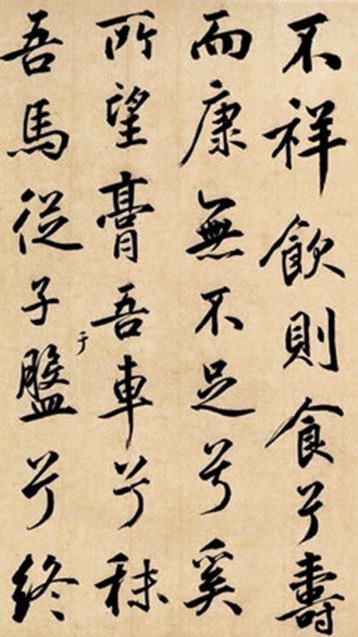 不祥飲則食兮壽
而康無不足兮奚
所望膏吾車兮秣
吾馬從子于盤兮終